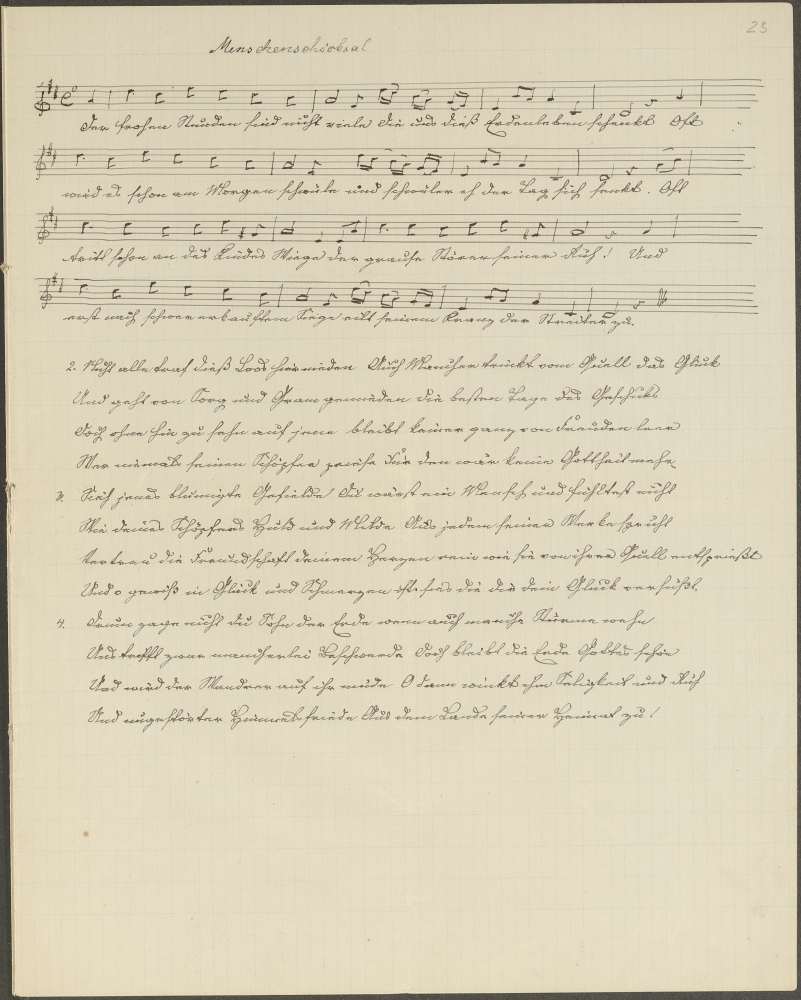 23
Menschenschicksal
Der frohen Stunden sind nicht viele die uns dieß Erdenleben schenkt Oft
wird es schon am Morgen schwüle und schwüler eh der Tag sich senkt. Oft
tritt schon an des Kindes Wiege der grause Störer seiner Ruh! Und
erst nach schwer erkauftem Siege eilt seinem Kranz der Streiter zu.
2. Nicht alle traf dieß Loos hienieden Auch Mancher trinkt vom Quell das Glück
Und geht von Sorg und Gram gemieden die besten Tage des Geschicks
Doch ohne hin zu sehn auf jene bleibt keiner ganz von Freuden leer
Wer niemals seinen Schöpfer preise Für den wär keine Gottheit mehr
3. Sieh jenes blumigte Gefielde Du wärst ein Mensch und fühltest nicht
Wie deines Schöpfers Huld und Milde Aus jedem seiner Werke spricht
Vertrau die Freundschaft deinem Herzen rein wie sie von ihrer Quell entsprießt
Und o gewiß in Glück und Schmerzen ist sies die dir dein Glück versüßt.
4. Drum zage nicht du Sohn der Erde wenn auch manche Stürme wehn
Uns trifft zwar mancherlei Beschwerde Doch bleibt die Erde Gottes schön
Und wird der Wandrer auf ihr müde O dann winkt ihm Seligkeit und Ruh
Und ungestörter Himmelsfriede Aus dem Lande seiner Heimat zu!